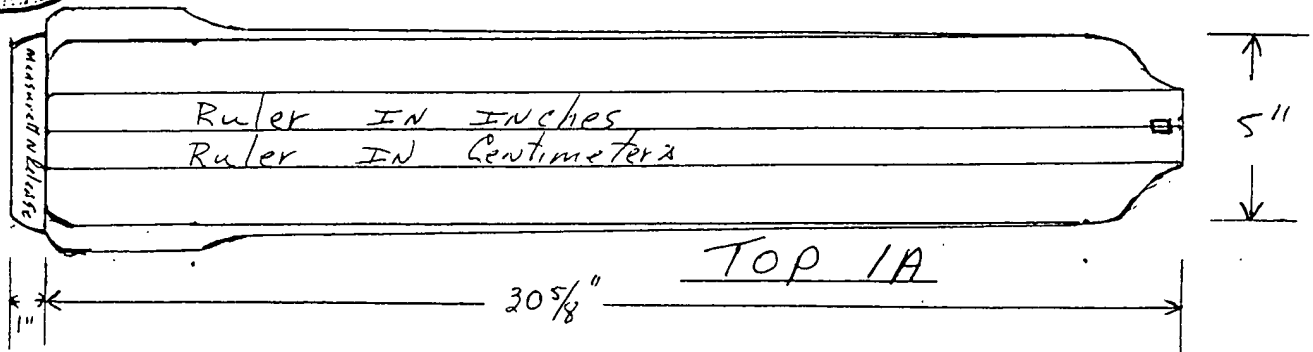 Measure It N Release
Ruler IN INches
Ruler IN Centimeters
5"
TOP 1A
30 5/8"
1"